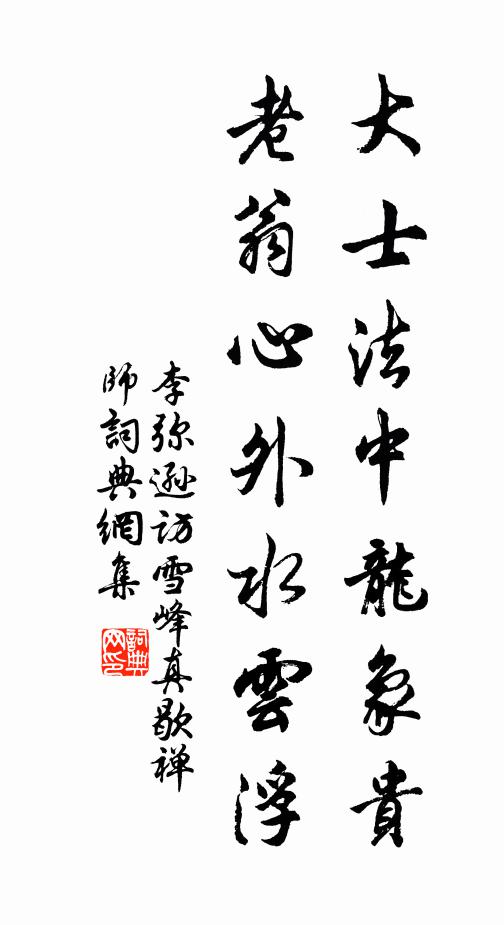 大士法中龍象貴
老翁心外水雲浮
李弥遜訪雪峰真歇禅
師詞典網集
詞典
网印